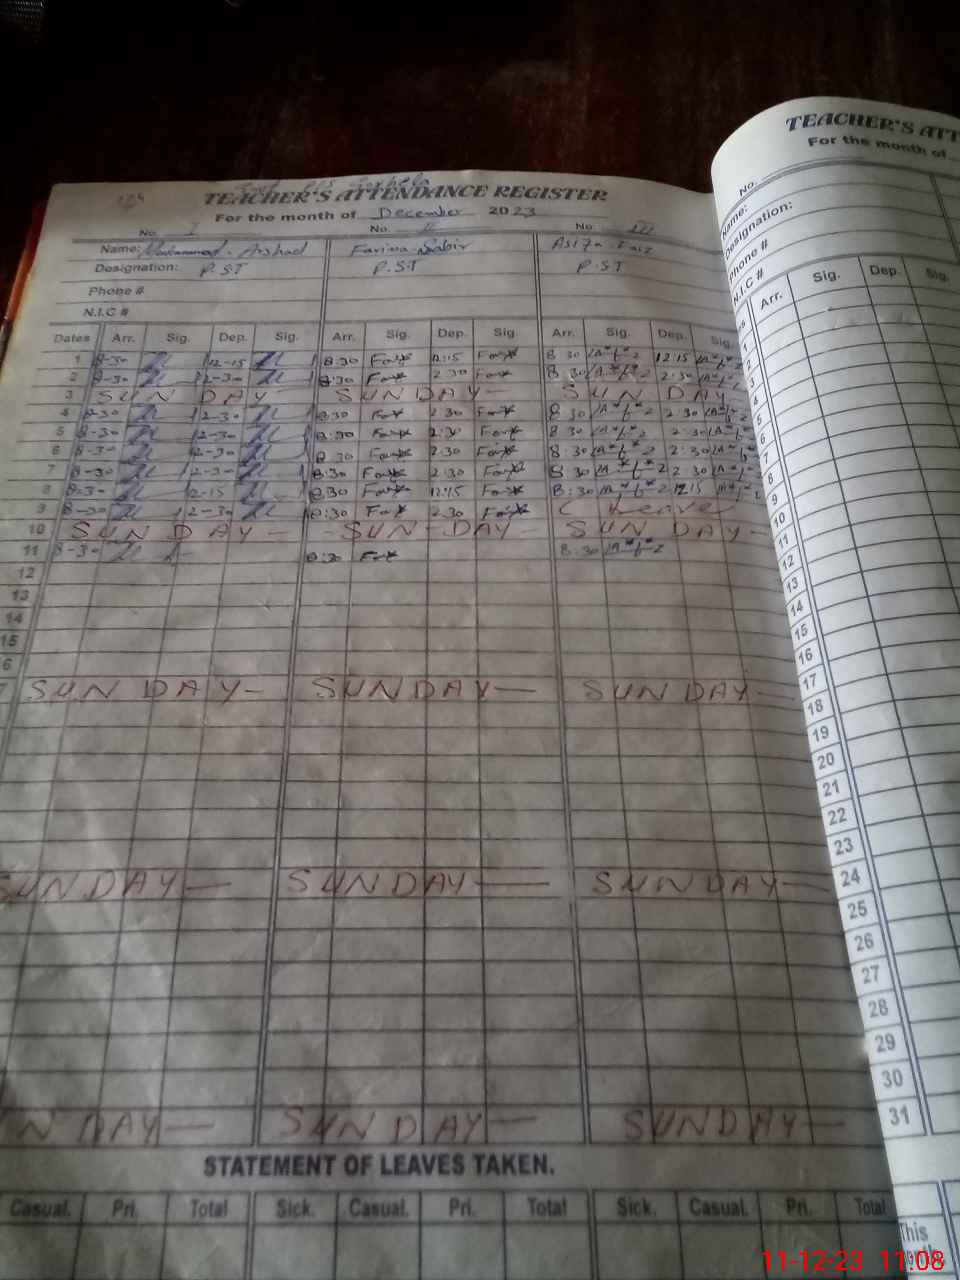 TEACHER'S ATTENDANCE REGISTER
For the month of December 2023
No. I No. II No. III
Name: Muhammad Arshad Farina Sabir Asifa Faiz
Designation: P.S.T P.S.T P.S.T
Phone #
N.I.C #
Dates Arr. Sig. Dep. Sig. Arr. Sig. Dep. Sig Arr. Sig. Dep. Sig.
1 8-30 12-15 8:30 12:15 8:30 12:15
2 8-30 2-30 8:30 2:30 8:30 2:30
3 SUNDAY SUNDAY SUNDAY
4 8-30 2-30 8:30 2:30 8:30 2:30
5 8-30 2-30 8:30 2:30 8:30 2:30
6 8-30 2-30 8:30 2:30 8:30 2:30
7 8-30 2-30 8:30 2:30 8:30 2:30
8 8-30 12-15 8:30 12:15 8:30 12:15
9 8-30 2-30 8:30 2:30 C Leave
10 SUNDAY SUNDAY SUNDAY
11 8-30 8:30 8:30
12
13
14
15
6
7 SUNDAY SUNDAY SUNDAY
SUNDAY SUNDAY SUNDAY
NDAY SUNDAY SUNDAY
STATEMENT OF LEAVES TAKEN.
Casual. Pri. Total Sick. Casual. Pri. Total Sick. Casual. Pri. Total
TEACHER'S ATT
For the month of
No.
Name:
Designation:
Phone #
N.I.C #
Arr. Sig. Dep. Sig.
1
2
3
4
5
6
7
8
9
10
11
12
13
14
15
16
17
18
19
20
21
22
23
24
25
26
27
28
29
30
31
This
11-12-23 11:08